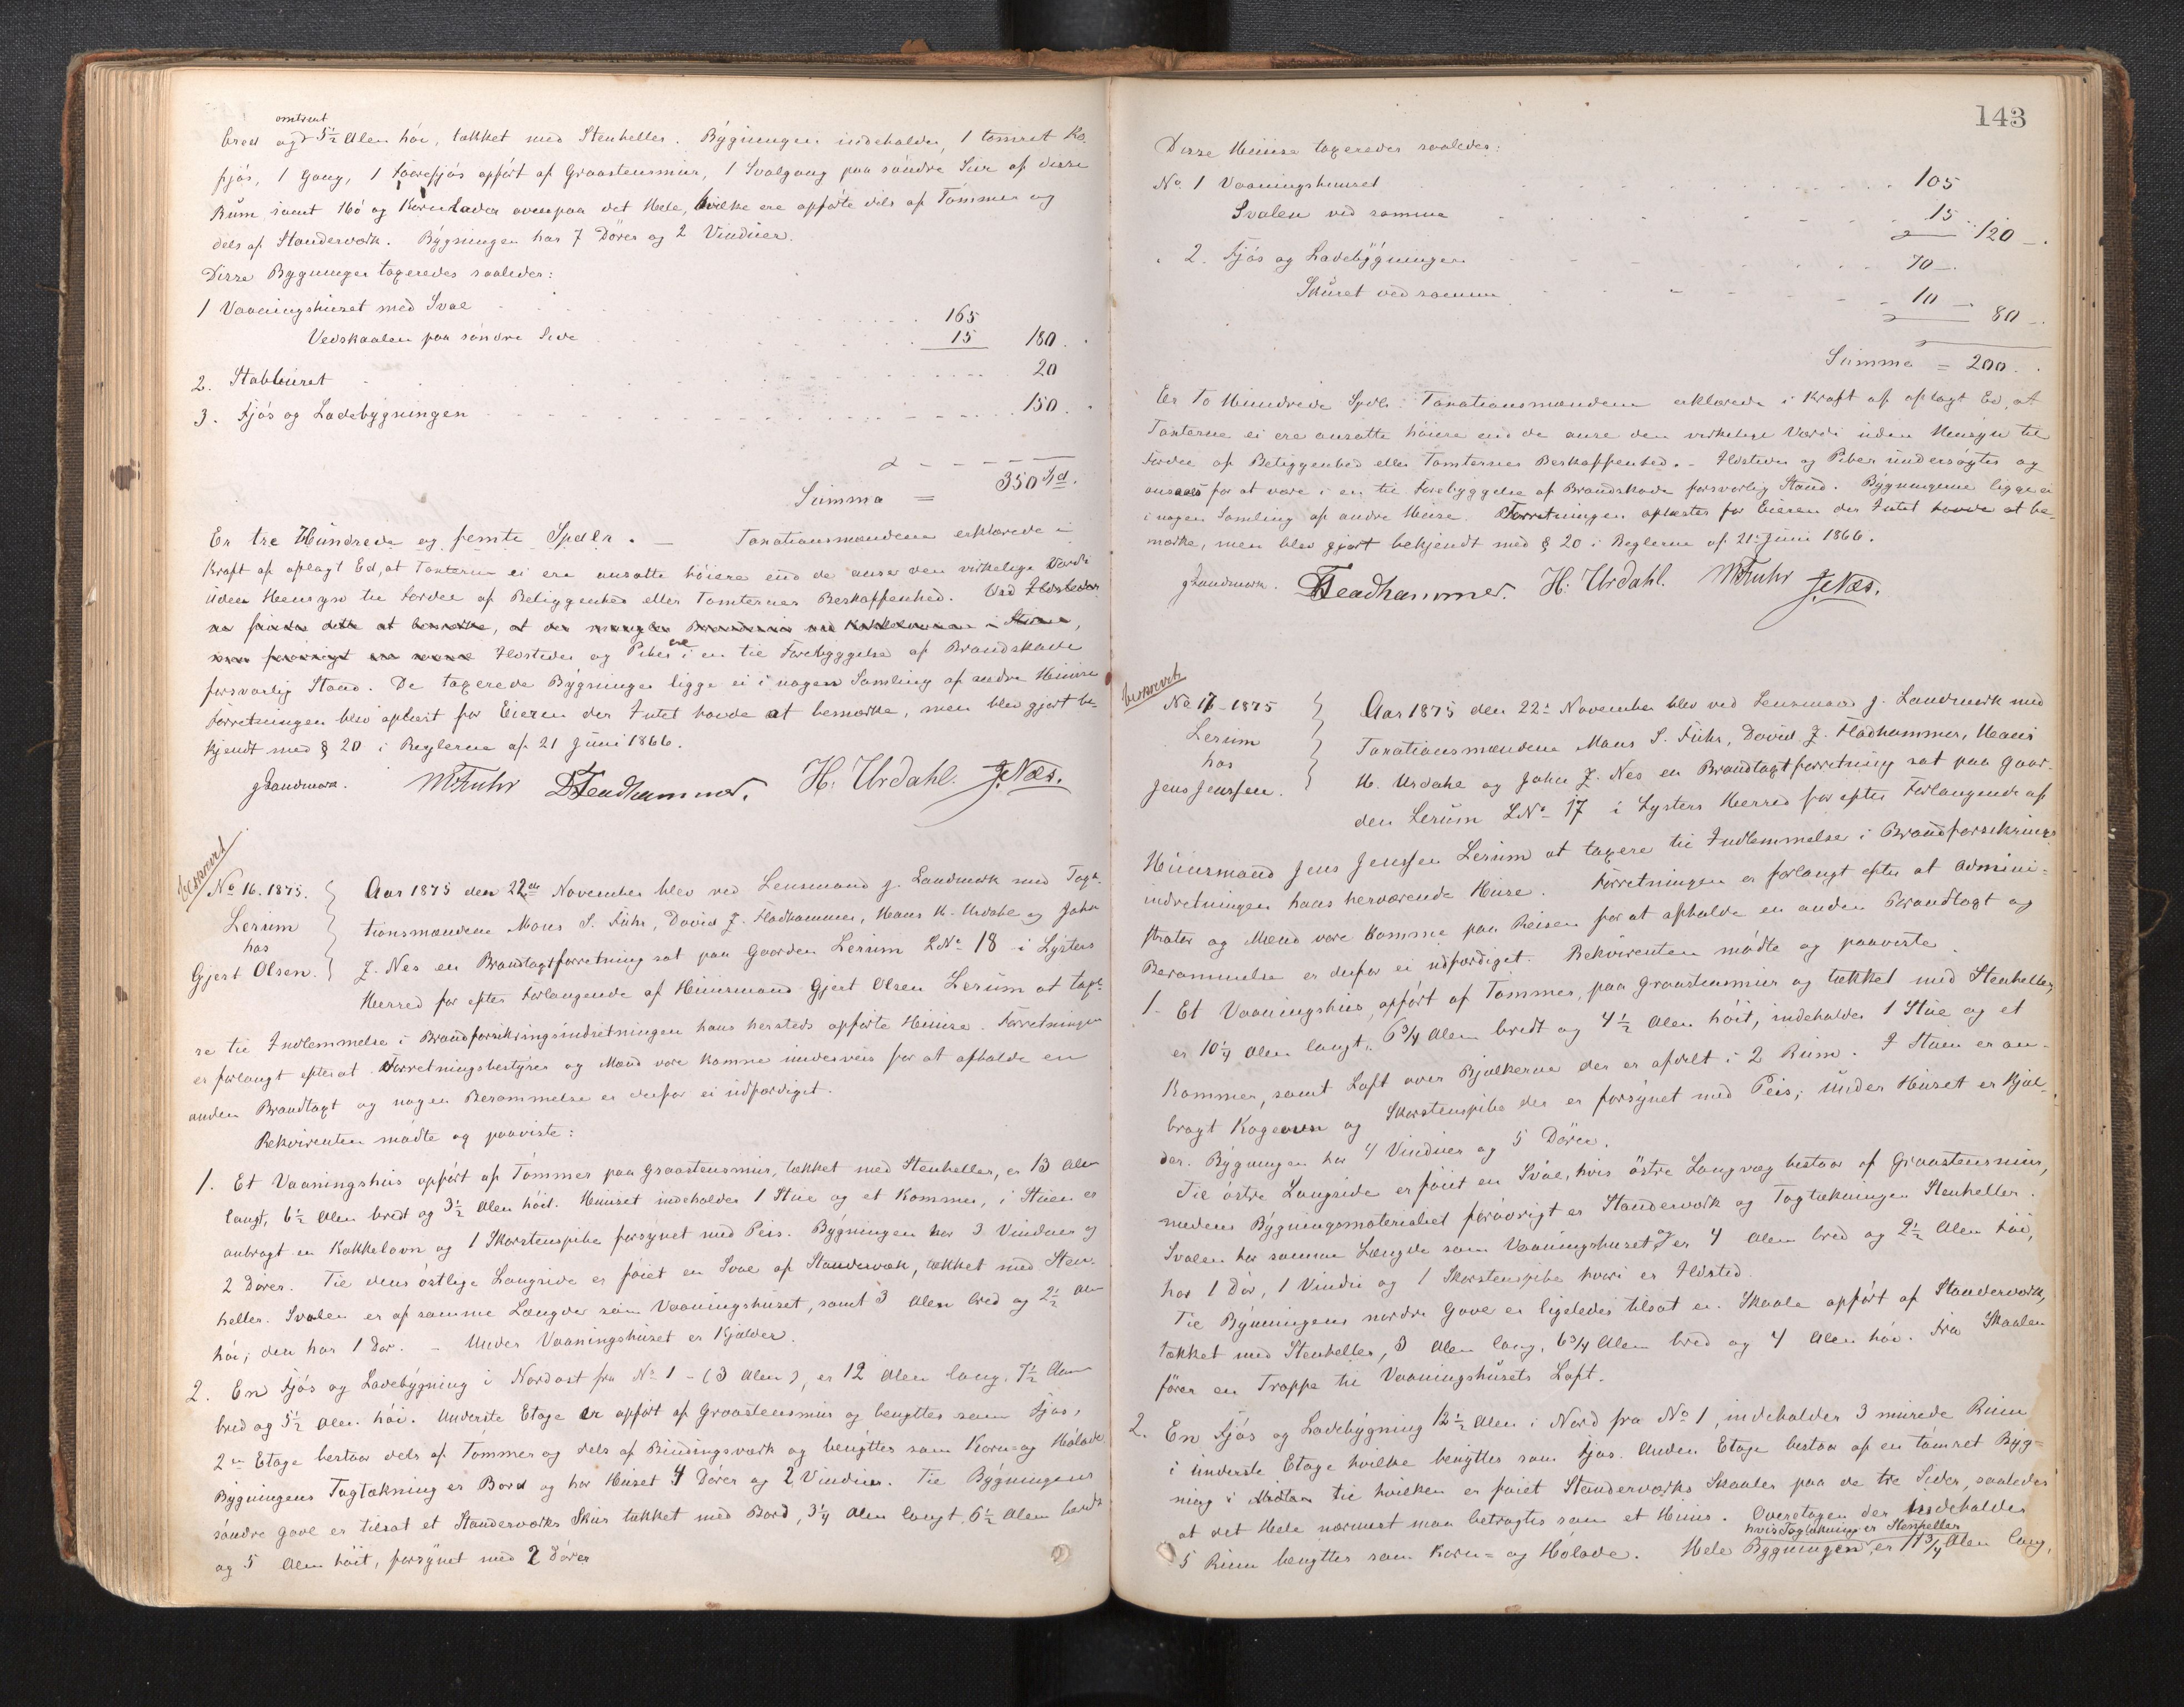 omtrent
bred og 5½ Alen höi, tækket med Stenheller. Bygningen indeholder, 1 tömret Ko-
fjös, 1 Gang, 1 Faarefjös opfört af Graastensmur, 1 Svalgang paa söndre Side af disse
Rum, samt Hö og Kornlader ovenpaa det Hele, hvilke ere opförte dels af Tömmer og
dels af Standerværk. Bygningen har 7 Dörer og 2 Vinduer.
Disse Bygninger taxeredes saaledes:
1 Vaaningshuset med Sval 165
Vedskaalen paa söndre Side 15 180.
2. Stabburet 20
3. Fjös og Ladebygningen 150.
Summa = 350 Spd.
Er tre Hundrede og femti Spdlr. – Taxationsmændene erklærede i
Kraft af aflagt Ed, at Taxterne ei ere ansatte höiere end de anse den virkelige Værdi
uden Hensyn til Fordel af Beliggenhed eller Tomternes Beskaffenhed. Ved Ildsteder
ne fandtes dette at bemærke, at der mangler
Ildsteder og Piber ere i en til Forebyggelse af Brandskade
forsvarlig Stand. De taxerede Bygninger ligge ei i nogen Samling af andre Huuse
Forretningen blev oplæst for Eieren der Intet havde at bemærke, men blev gjort be-
kjendt med § 20 i Reglerne af 21 Juni 1866.
J Landmark. M S Fuhr D J Fladhammer. H. Urdahl. J. Næs.
beskrevet
No 16. 1875. Aar 1875 den 22de November blev ved Lensmand J. Landmark med Taxa-
Lerum tionsmændene Mons S. Fuhr, David J. Fladhammer, Hans H. Urdahl og John
hos J. Nes en Brandtaxtforretning sat paa Gaarden Lerum LNo 18 i Lysters
Gjert Olsen. Herred for efter Forlangende af Huusmand Gjert Olsen Lerum at taxe-
re til Indlemmelse i Brandforsikringsindretningen hans hersteds opförte Huuse. Forretningen
er forlangt efterat Forretningsbestyrer og Mænd vare komne underveis for at afholde en
anden Brandtaxt og nogen Berammelse er derfor ei udfærdiget.
Rekvirenten mödte og paaviste:
1. Et Vaaningshus opfört af Tömmer paa Graastensmur, tækket med Stenheller, er 13 Alen
langt, 6½ Alen bredt og 3½ Alen höit. Huuset indeholder 1 Stue og et Kammer, i Stuen er
anbragt en Kakkelovn og 1 Skorstenspibe forsynet med Peis. Bygningen har 3 Vinduer og
2 Dörer. Til dens östlige Langside er föiet en Sval af Standerværk, tækket med Sten-
heller. Svalen er af samme Længde som Vaaningshuset, samt 3 Alen bred og 2½ Alen
höi; den har 1 Dör. – Under Vaaningshuset er Kjælder.
2. En Fjös og Ladebygning i Nordost fra No 1 – (3 Alen), er 12 Alen lang, 7½ Alen
bred og 5½ Alen höi. Underste Etage er opfört af Graastensmur og benyttes som Fjös,
2en Etage bestaar dels af Tömmer og dels af Bindingsværk og benyttes som Korn- og Hölade
Bygningens Tagtækning er Bord og har Huset 4 Dörer og 2 Vinduer. Til Bygningens
söndre Gavl er tilsat et Standerværks Skur tækket med Bord, 3¼ Alen langt, 6½ Alen bredt
og 5 Alen höit, forsynet med 2 Dörer
143
Disse Huuse taxeredes saaledes:
No. 1 Vaaningshuuset 105
Svalen ved samme 15 120 –.
2. Fjös og Ladebygningen 70 –.
Skuret ved samme 10 – 80 –.
Summa = 200.
Er To Hundrede Spdlr. Taxationsmændene erklærede i Kraft af aflagt Ed, at
Taxterne ei ere ansatte höiere end de anse den virkelige Værdi uden Hensyn til
Fordel af Beliggenhed eller Tomternes Beskaffenhed. – Ildsteder og Piber undersögtes og
ansaaes for at være i en til Forebyggelse af Brandskade forsvarlig Stand. Bygningerne ligge ei
i nogen Samling af andre Huse. Forretningen oplæstes for Eieren der Intet havde at be-
mærke, men blev gjort bekjendt med § 20 i Reglerne af 21de Juni 1866.
J Landmark. D J Fladhammer. H. Urdahl. M S Fuhr J. Næs.
beskrevet
No 17 – 1875 Aar 1875 den 22de November blev ved Lensmand J. Landmark med
Lerum Taxationsmændene Mons S. Fuhr, David J. Fladhammer, Hans
hos H. Urdahl og John J. Nes en Brandtaxtforretning sat paa Gaar-
Jens Jenssen. den Lerum LNo 17 i Lysters Herred for efter Forlangende af
Huusmand Jens Jenssen Lerum at taxere til Indlemmelse i Brandforsikrings
indretningen hans herværende Huse. Forretningen er forlangt efter at Admini-
strator og Mænd vare komne paa Reisen for at afholde en anden Brandtaxt og
Berammelse er derfor ei udfærdiget. Rekvirenten mödte og paaviste.
1. Et Vaaningshus, opfört af Tömmer, paa Graastensmur og tækket med Stenheller,
er 10¼ Alen langt, 6¾ Alen bredt og 4½ Alen höit, indeholder 1 Stue og et
Kammer, samt Loft over Bjælkerne der er afdelt i 2 Rum. I Stuen er an-
bragt Kogeovn og Skorstenspibe der er forsynet med Peis; under Huset er Kjæl-
der. Bygningen har 4 Vinduer og 5 Dörer.
Til östre Langside er föiet en Sval, hvis östre Langvæg bestaar af Graastensmur,
medens Bygningsmaterialiet forövrigt er Standerværk og Tagtækningen Stenheller.
Svalen har samme Længde som Vaaningshuset og er 4 Alen bred og 2½ Alen höi,
har 1 Dör, 1 Vindue og 1 Skorstenspibe hvori er Ildsted.
Til Bygningens nordre Gavl er ligeledes tilsat en Skaale opfört af Standerværk,
tækket med Stenheller, 3 Alen lang, 6¾ Alen bred og 4 Alen höi. Fra Skaalen
förer en Trappe til Vaaningshusets Loft.
2. En Fjös og Ladebygning 12½ Alen i Nord fra No 1, indeholder 3 murede Rum
i underste Etage hvilke benyttes som Fjös. Anden Etage bestaar af en tömret Byg-
ning i Midten til hvilken er föiet Standerværks Skaaler paa de tre Sider, saaledes
at det Hele nærmest maa betragtes som et Huus. Overetagen der indeholder
hvis Tagtækning er Stenheller
5 Rum benyttes som Korn- og Hölade. Hele Bygningen er 11¾ Alen lang,